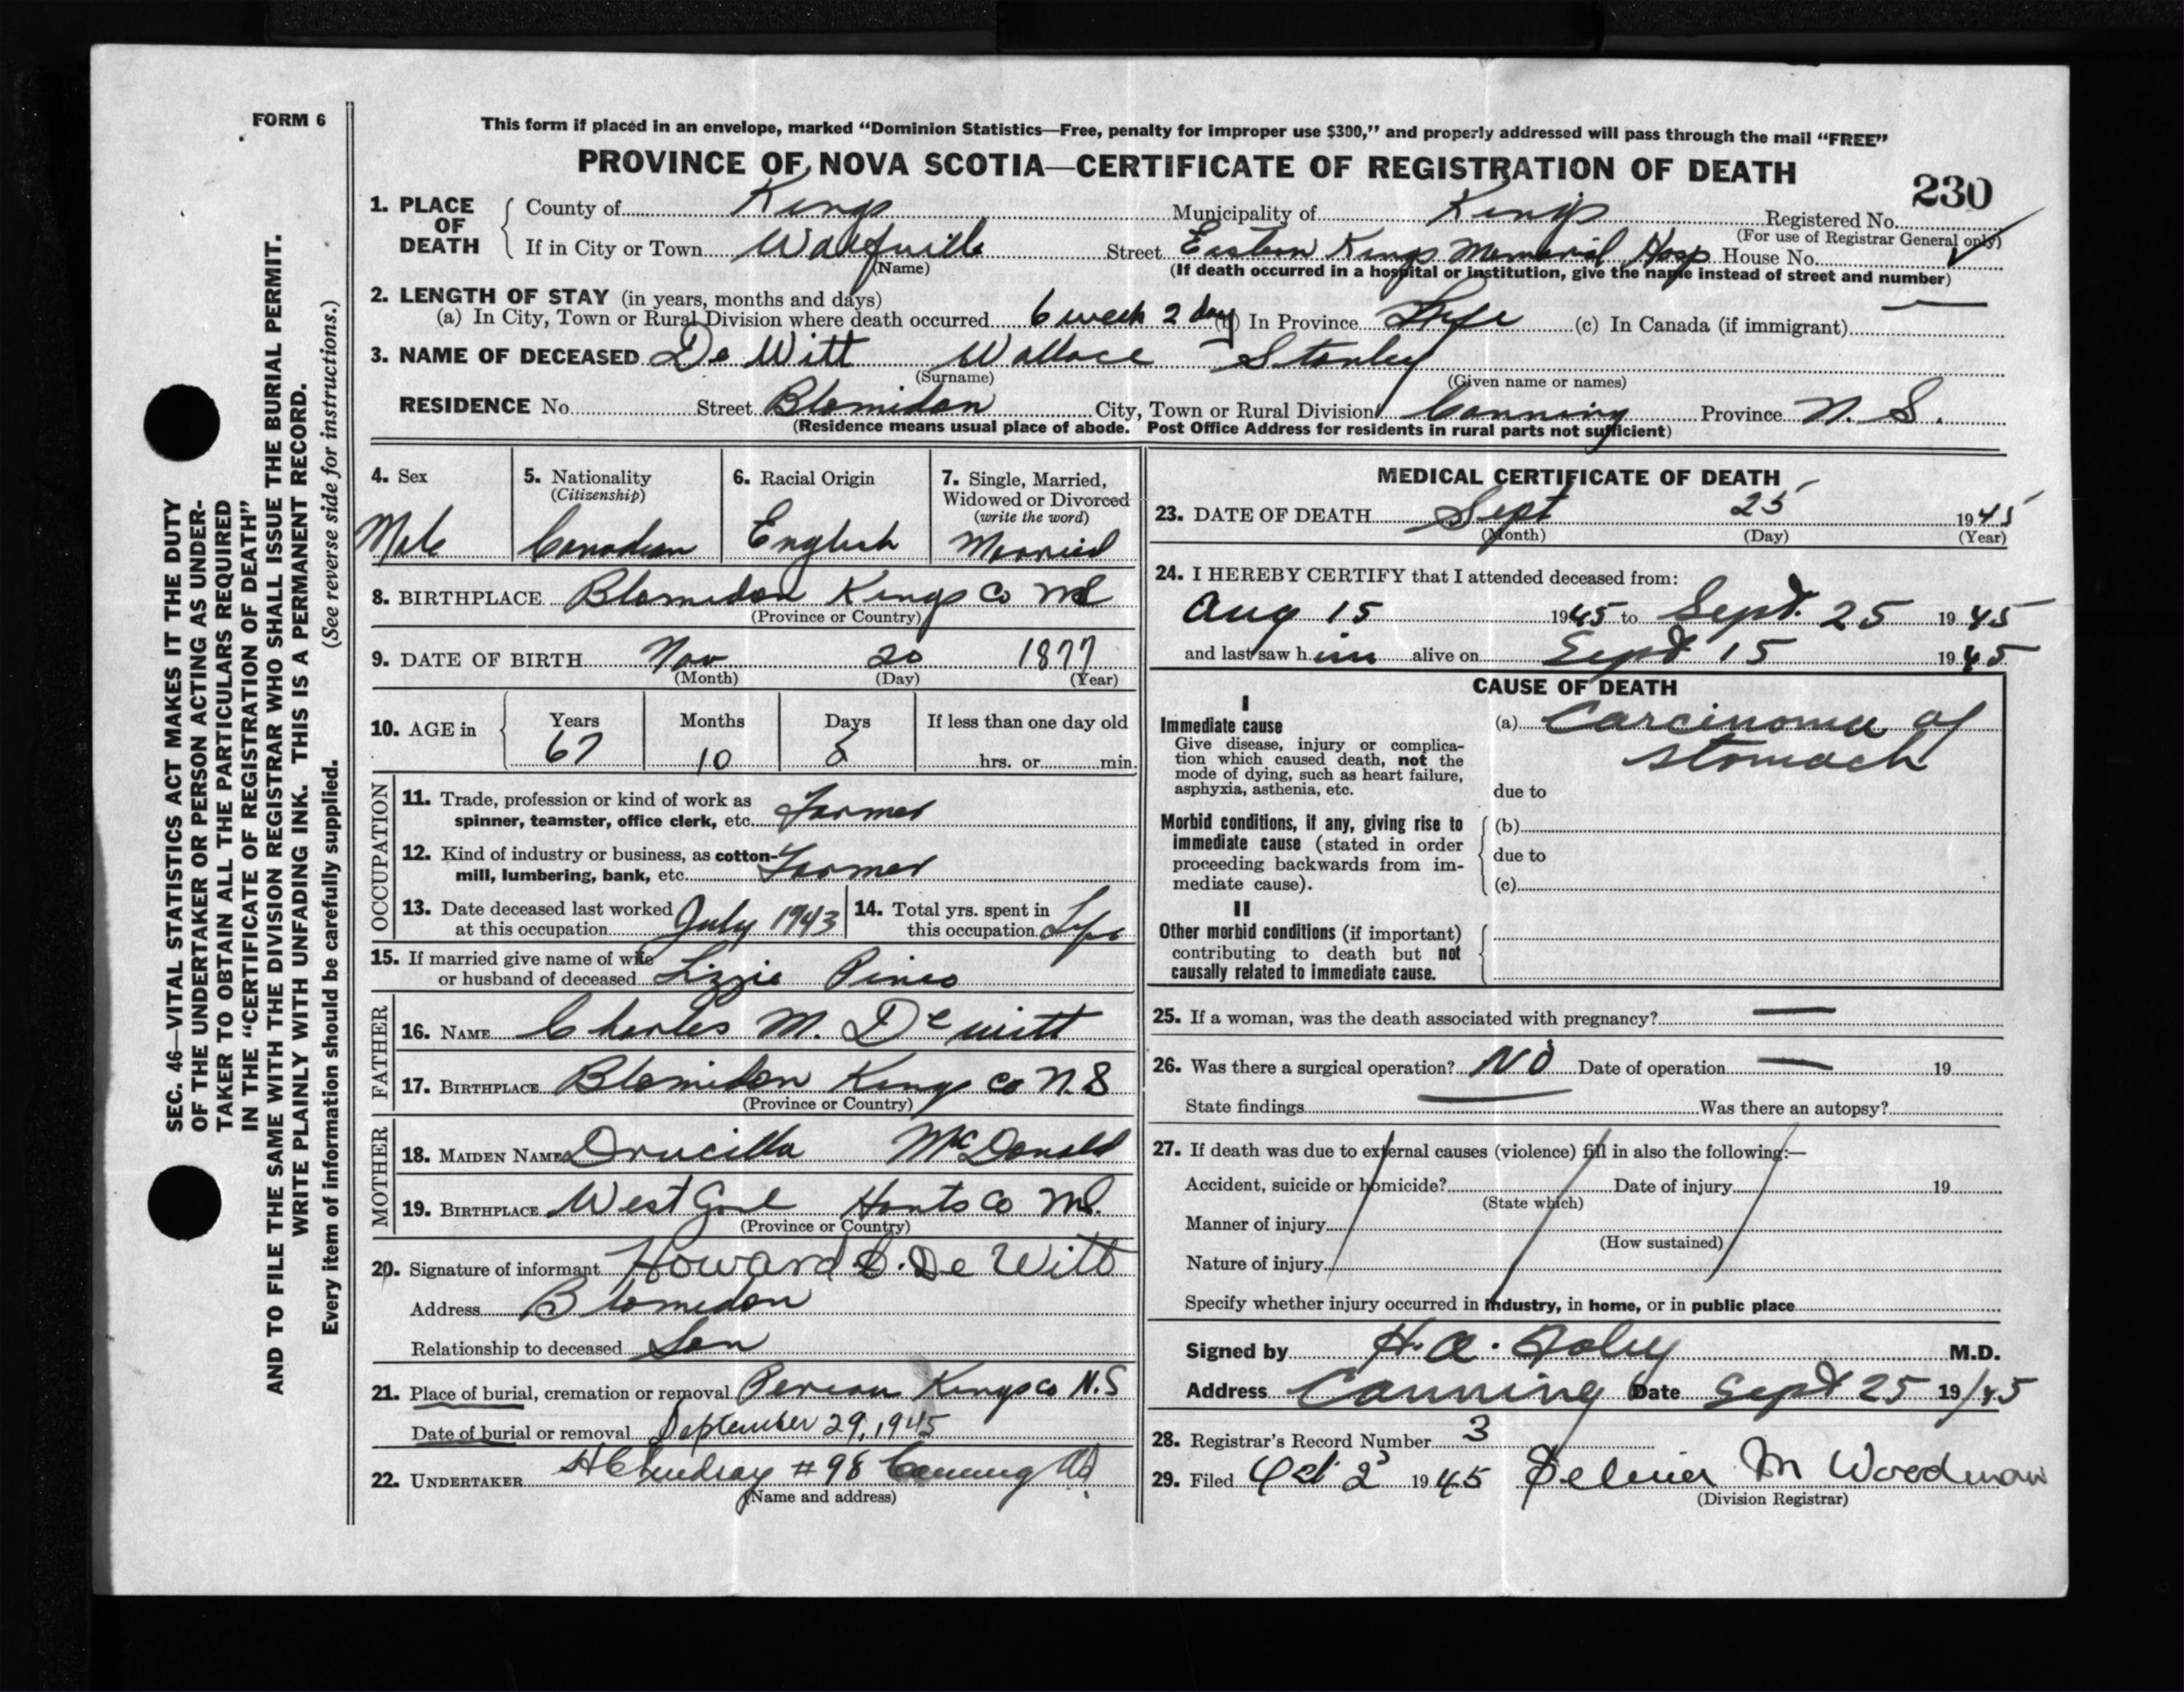 FORM 6
This form if placed in an envelope, marked “Dominion Statistics—Free, penalty for improper use $300,” and properly addressed will pass through the mail “FREE”
PROVINCE OF NOVA SCOTIA—CERTIFICATE OF REGISTRATION OF DEATH
230
1. PLACE OF DEATH County of Kings Municipality of Kings Registered No.
(For use of Registrar General only)
If in City or Town Wolfville Street Eastern Kings Memorial Hosp House No.
(Name) (If death occurred in a hospital or institution, give the name instead of street and number)
2. LENGTH OF STAY (in years, months and days)
(a) In City, Town or Rural Division where death occurred 6 week 2 day (b) In Province Life (c) In Canada (if immigrant) —
3. NAME OF DECEASED De Witt Wallace Stanley
(Surname) (Given name or names)
RESIDENCE No. Street Blomidon City, Town or Rural Division Canning Province N. S.
(Residence means usual place of abode. Post Office Address for residents in rural parts not sufficient)
4. Sex Male
5. Nationality (Citizenship) Canadian
6. Racial Origin English
7. Single, Married, Widowed or Divorced (write the word) Married
8. BIRTHPLACE Blomidon Kings Co NS
(Province or Country)
9. DATE OF BIRTH Nov 20 1877
(Month) (Day) (Year)
10. AGE in Years Months Days If less than one day old
67 10 hrs. or min.
OCCUPATION
11. Trade, profession or kind of work as
spinner, teamster, office clerk, etc. Farmer
12. Kind of industry or business, as cotton-
mill, lumbering, bank, etc. Farmer
13. Date deceased last worked at this occupation July 1943
14. Total yrs. spent in this occupation Life
15. If married give name of wife
or husband of deceased Lizzie Pineo
FATHER
16. NAME Charles M. Dewitt
17. BIRTHPLACE Blomidon Kings Co N.S
(Province or Country)
MOTHER
18. MAIDEN NAME Drucilla McDonald
19. BIRTHPLACE West Gore Hants Co NS.
(Province or Country)
20. Signature of informant Howard De Witt
Address Blomidon
Relationship to deceased Son
21. Place of burial, cremation or removal Pereau Kings Co N.S
Date of burial or removal September 29, 1945
22. UNDERTAKER H C Lindsay #98 Canning NS
(Name and address)
MEDICAL CERTIFICATE OF DEATH
23. DATE OF DEATH Sept 25 1945
(Month) (Day) (Year)
24. I HEREBY CERTIFY that I attended deceased from:
Aug 15 1945 to Sept. 25 1945
and last saw him alive on Sept 15 1945
CAUSE OF DEATH
I
Immediate cause (a) Carcinoma of
stomach
Give disease, injury or complica-
tion which caused death, not the
mode of dying, such as heart failure,
asphyxia, asthenia, etc. due to
Morbid conditions, if any, giving rise to (b)
immediate cause (stated in order
proceeding backwards from im- due to
mediate cause). (c)
II
Other morbid conditions (if important)
contributing to death but not
causally related to immediate cause.
25. If a woman, was the death associated with pregnancy? —
26. Was there a surgical operation? NO Date of operation — 19
State findings Was there an autopsy?
27. If death was due to external causes (violence) fill in also the following:—
Accident, suicide or homicide? Date of injury 19
(State which)
Manner of injury
(How sustained)
Nature of injury
Specify whether injury occurred in industry, in home, or in public place
Signed by H. A. M.D.
Address Canning Date Sept 25 19/45
28. Registrar's Record Number 3
29. Filed Oct 2 1945 M Woodman
(Division Registrar)
SEC. 46—VITAL STATISTICS ACT MAKES IT THE DUTY
OF THE UNDERTAKER OR PERSON ACTING AS UNDER-
TAKER TO OBTAIN ALL THE PARTICULARS REQUIRED
IN THE “CERTIFICATE OF REGISTRATION OF DEATH”
AND TO FILE THE SAME WITH THE DIVISION REGISTRAR WHO SHALL ISSUE THE BURIAL PERMIT.
WRITE PLAINLY WITH UNFADING INK. THIS IS A PERMANENT RECORD.
Every item of information should be carefully supplied. (See reverse side for instructions.)